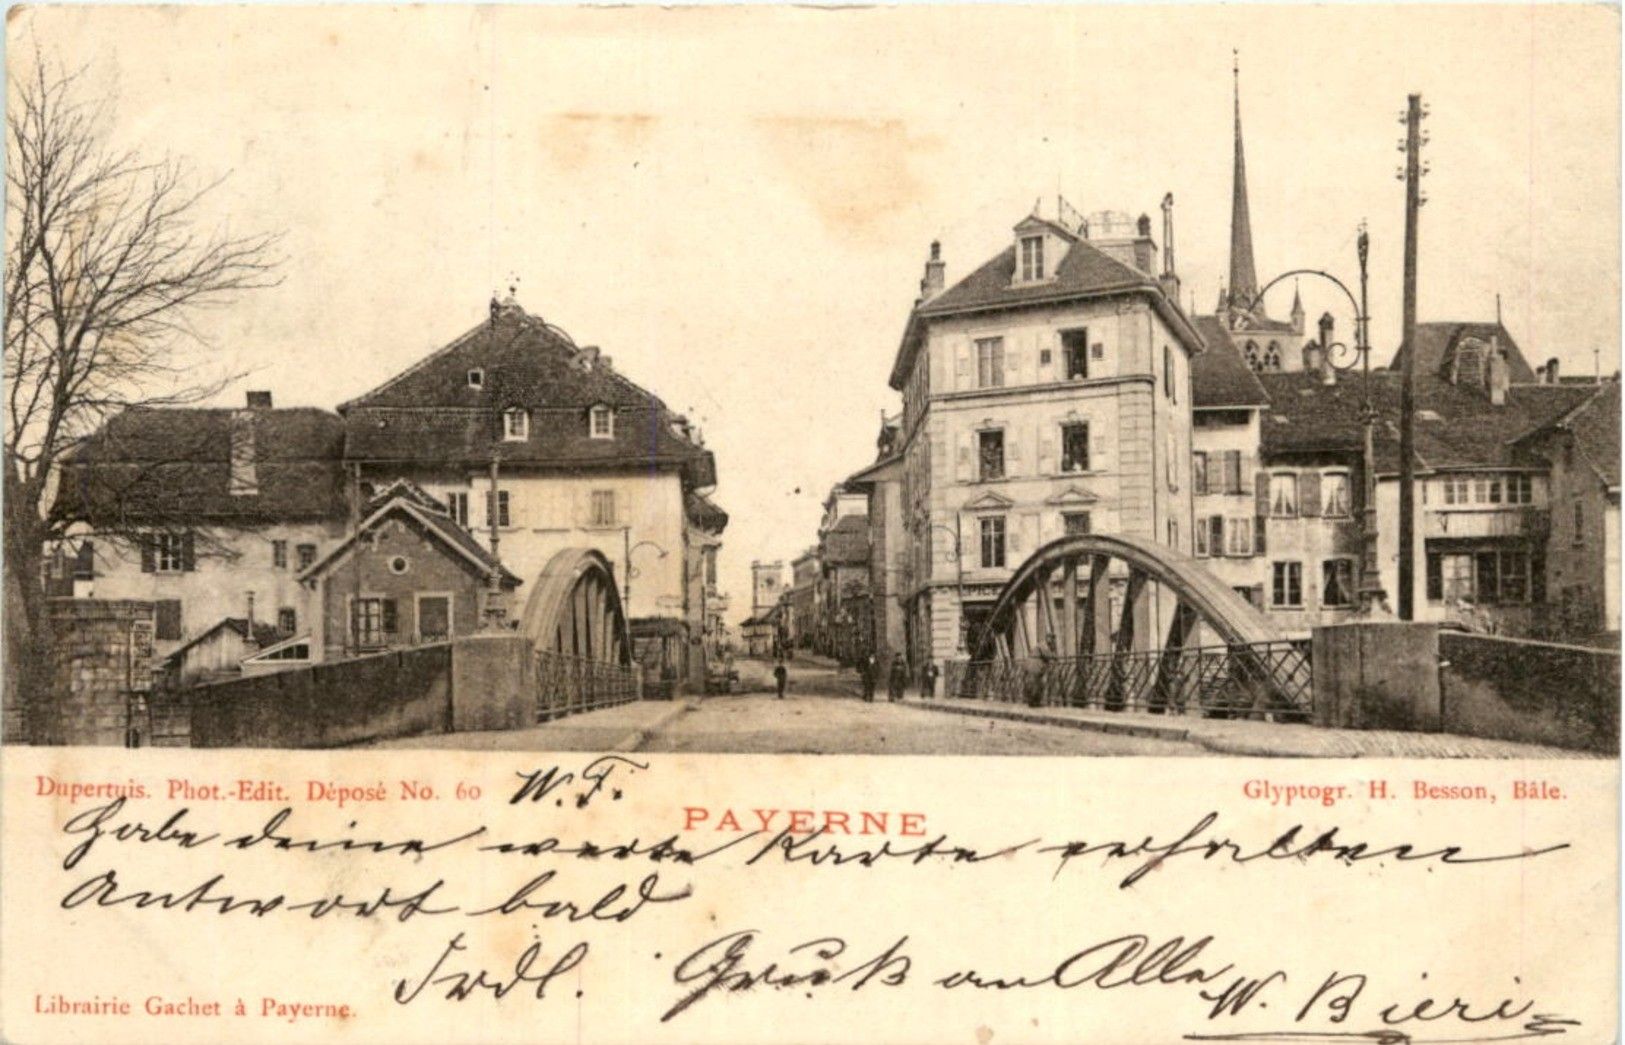 EPICE
Dupertuis. Phot.-Edit. Déposé No. 60
W. F.
Glyptogr. H. Besson, Bâle.
PAYERNE
Habe deine werte Karte erhalten
Antwort bald
Frdl. Gruß an Alle
W. Bieri
Librairie Gachet à Payerne.